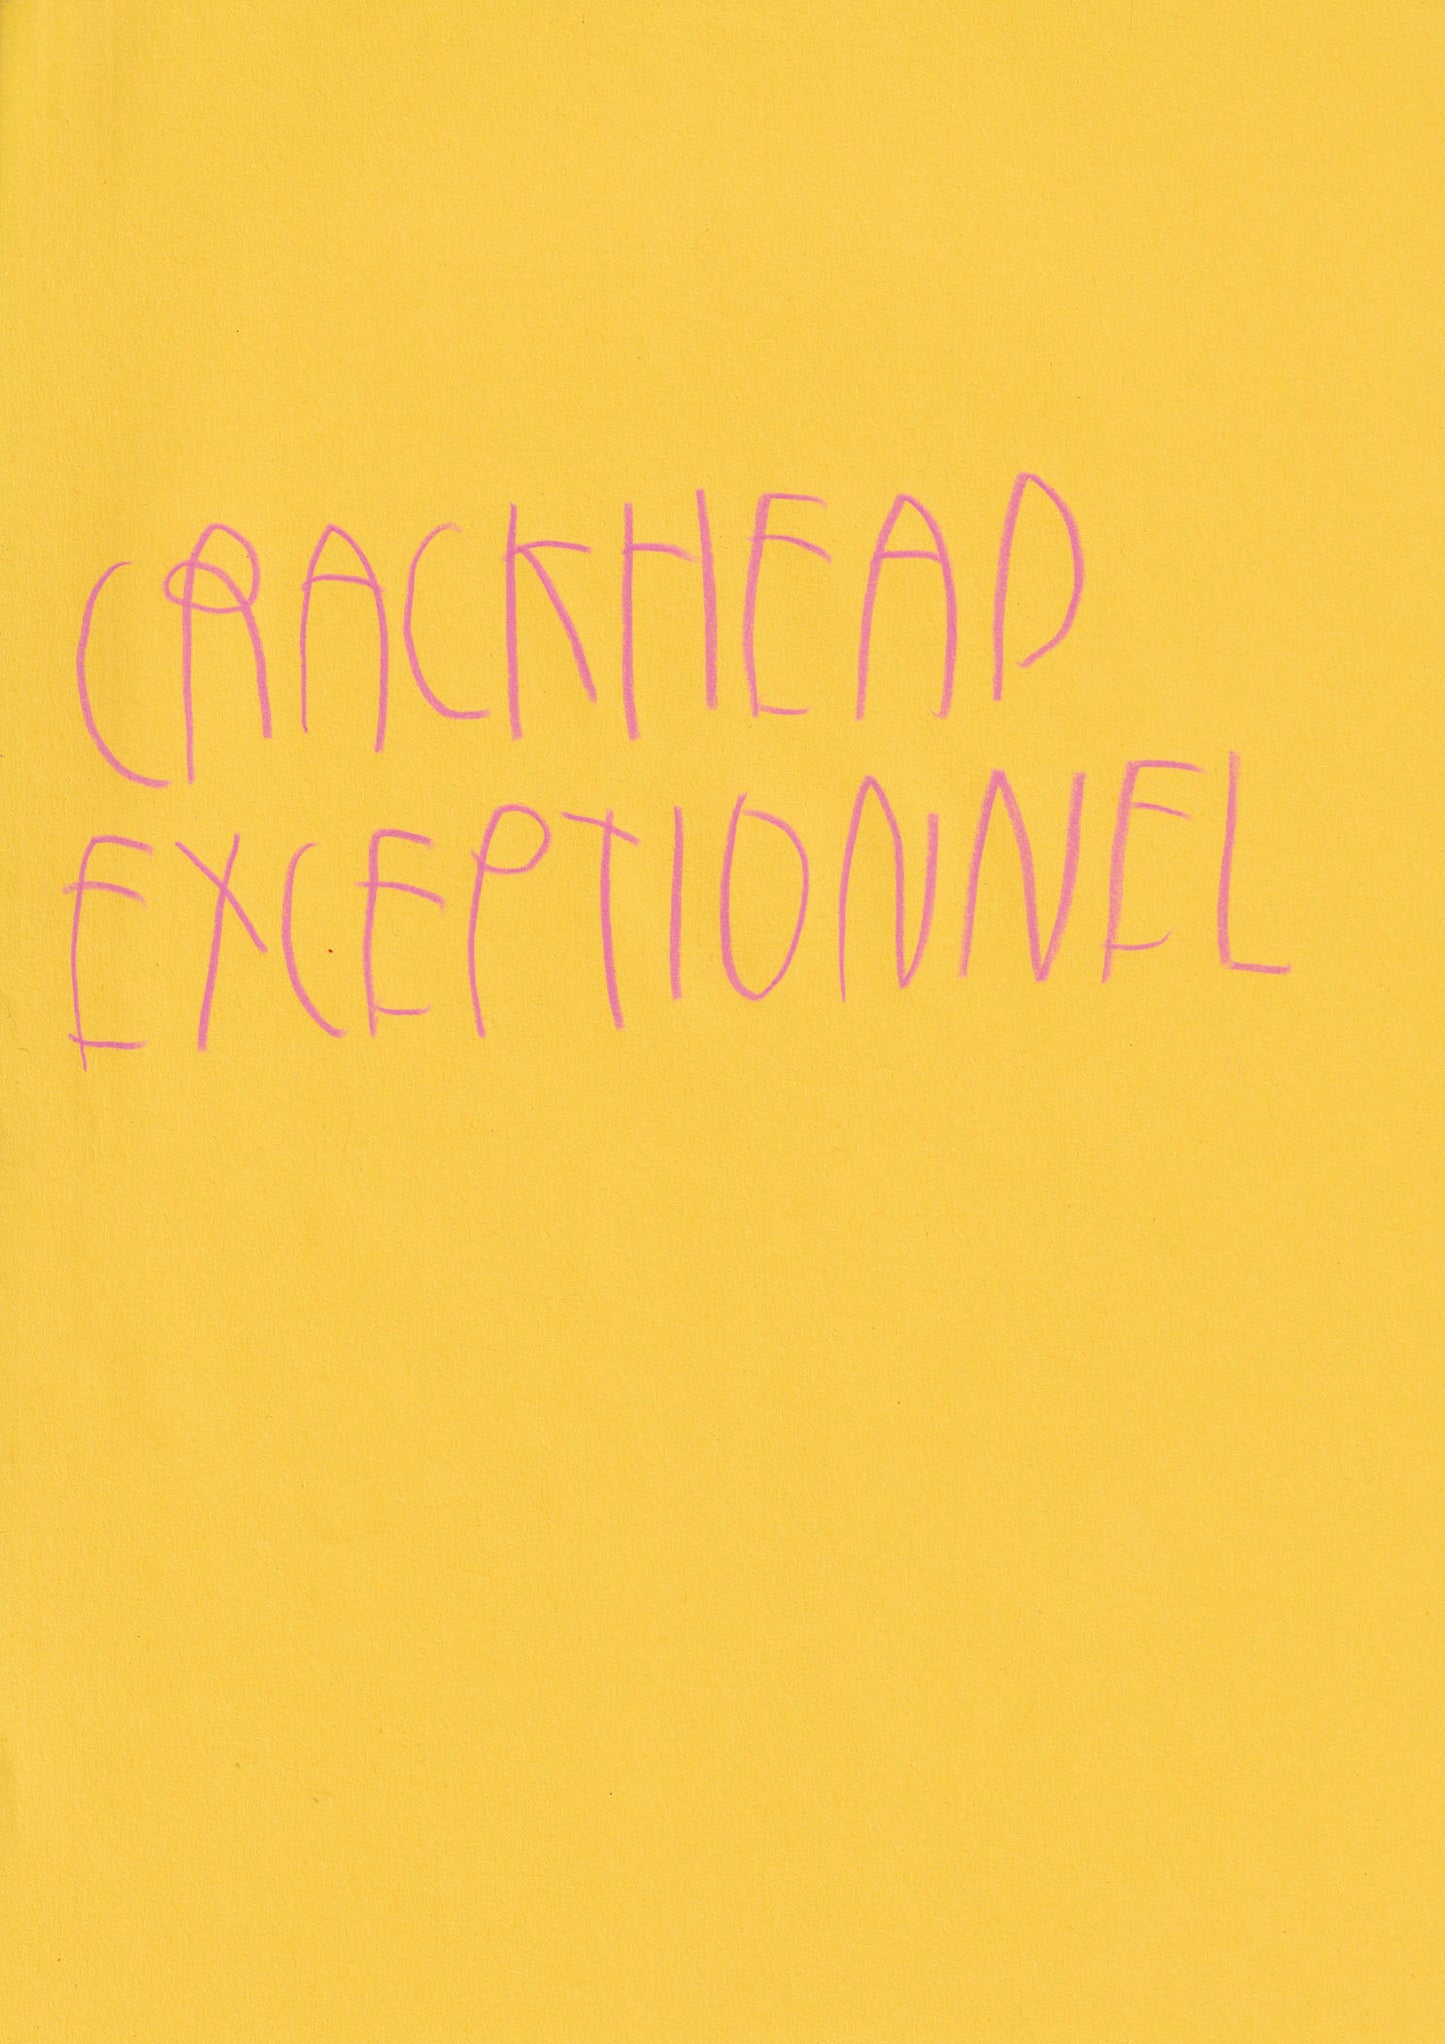 CRACKHEAD
EXCEPTIONNEL